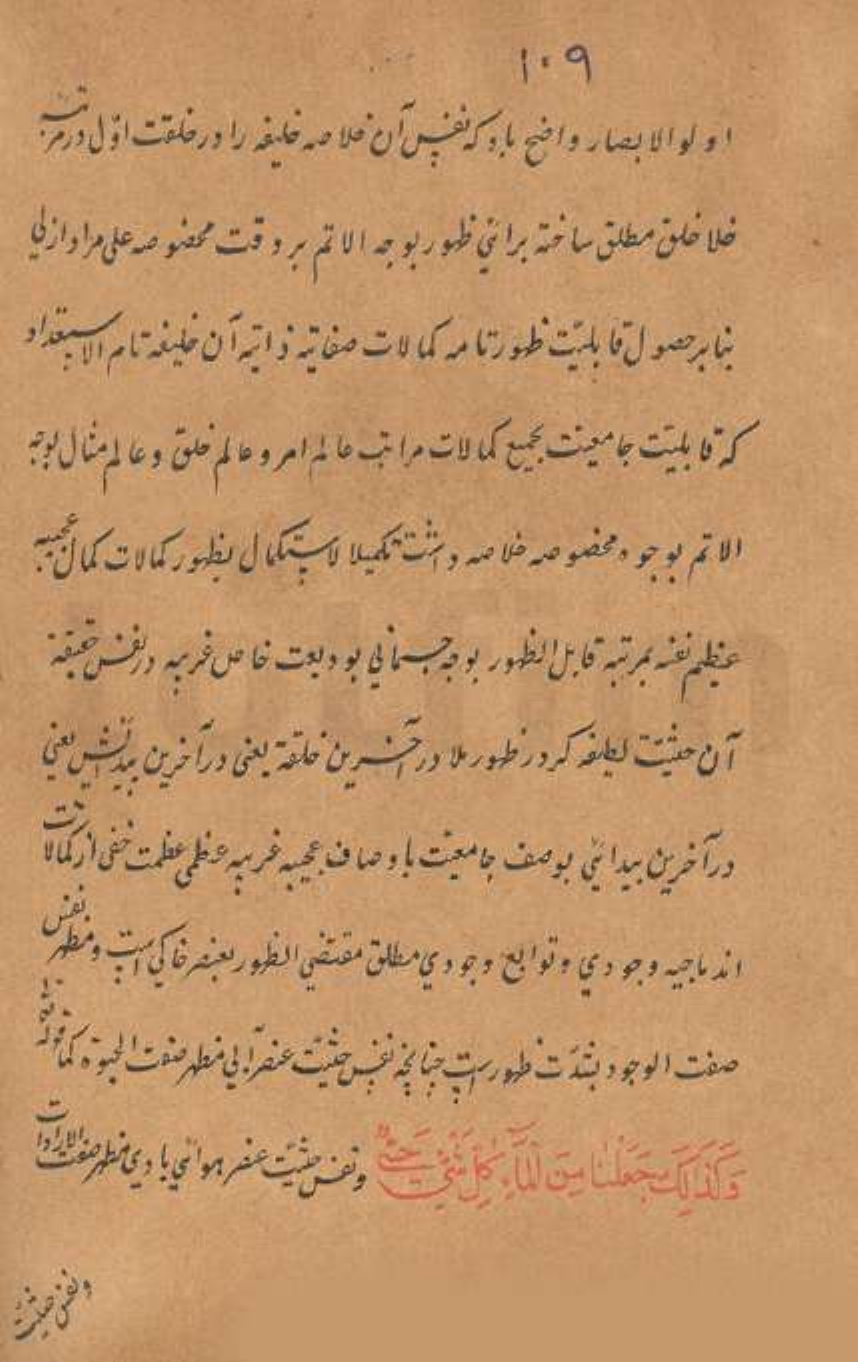 ۱۰۹
اولوالابصار واضح باد که نفس آن خلاصه خلیفه را در خلقت اوّل در مرتبه
خلا خلق مطلق ساخته برائی ظهور بوجه الاتم بر وقت مخصوصه علی مراد ازلی
بنا بر حصول قابلیّت ظهور تامه کمالات صفاتیه ذاتیه آن خلیفه تام الاستعداد
که قابلیّت جامعیّت بجمیع کمالات مراتب عالم امر و عالم خلق و عالم مثال بوجه
الاتم بوجود مخصوصه خلاصه داشت تکمیلا لاستکمال بظهور کمالات کمال عجیبه
عظیم نفسه بمرتبه قابل الظهور بوجه جسمانی بودیعت خاص غریبه در نفس حقیقة
آن حیثیّت لطیفه کرد در ظهور ملا در آخرین خلقة یعنی در آخرین پیدائش یعنی
در آخرین پیدائی بوصف جامعیّت باوصاف عجیبه غریبه عظمی عظمت خفی از کمالات
اندماجیه وجودي و توابع وجودي مطلق مقتضی الظهور بعنصر خاکی است و مظهر نفس
صفت الوجود بشدّت ظهور است چنانچه نفس حیثیّت عنصر آبی مظهر صفت الحیوة کما قوله تع
وَکَذٰلِکَ جَعَلْنَا مِنَ الْمَآءِ کُلَّ شَیْءٍ حَیٍّ و نفس حیثیّت عنصر هوائی بادي مظهر صفت الارادات
و نفس حیثیّت